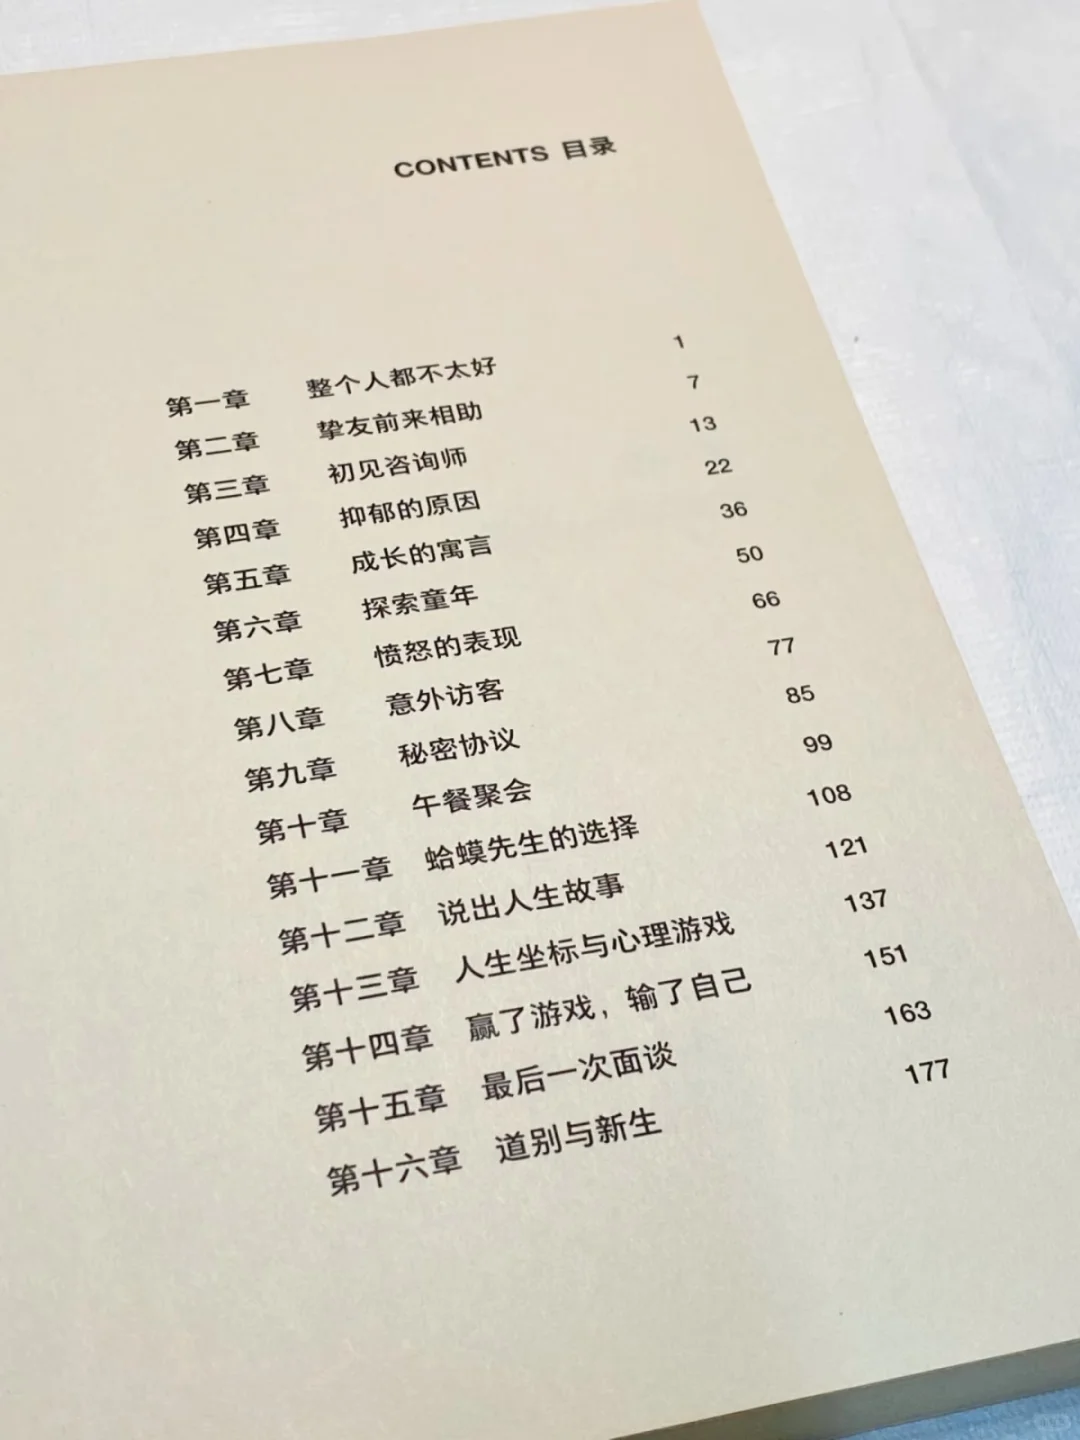 CONTENTS 目录
第一章 整个人都不太好 1
第二章 挚友前来相助 7
第三章 初见咨询师 13
第四章 抑郁的原因 22
第五章 成长的寓言 36
第六章 探索童年 50
第七章 愤怒的表现 66
第八章 意外访客 77
第九章 秘密协议 85
第十章 午餐聚会 99
第十一章 蛤蟆先生的选择 108
第十二章 说出人生故事 121
第十三章 人生坐标与心理游戏 137
第十四章 赢了游戏，输了自己 151
第十五章 最后一次面谈 163
第十六章 道别与新生 177